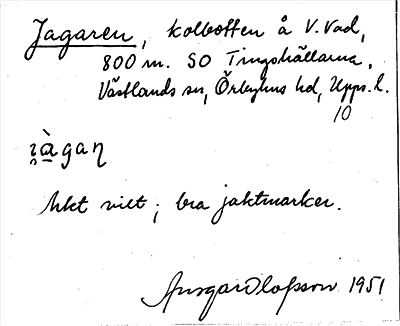 Jagaren, kolbotten å V. Vad,
800 m. SO Tingshällarna,
Västlands sn, Örbyhus hd, Upps. l.
10
i̯àgaɳ
Mkt vilt; bra jaktmarker.
Ansgar Olofsson 1951